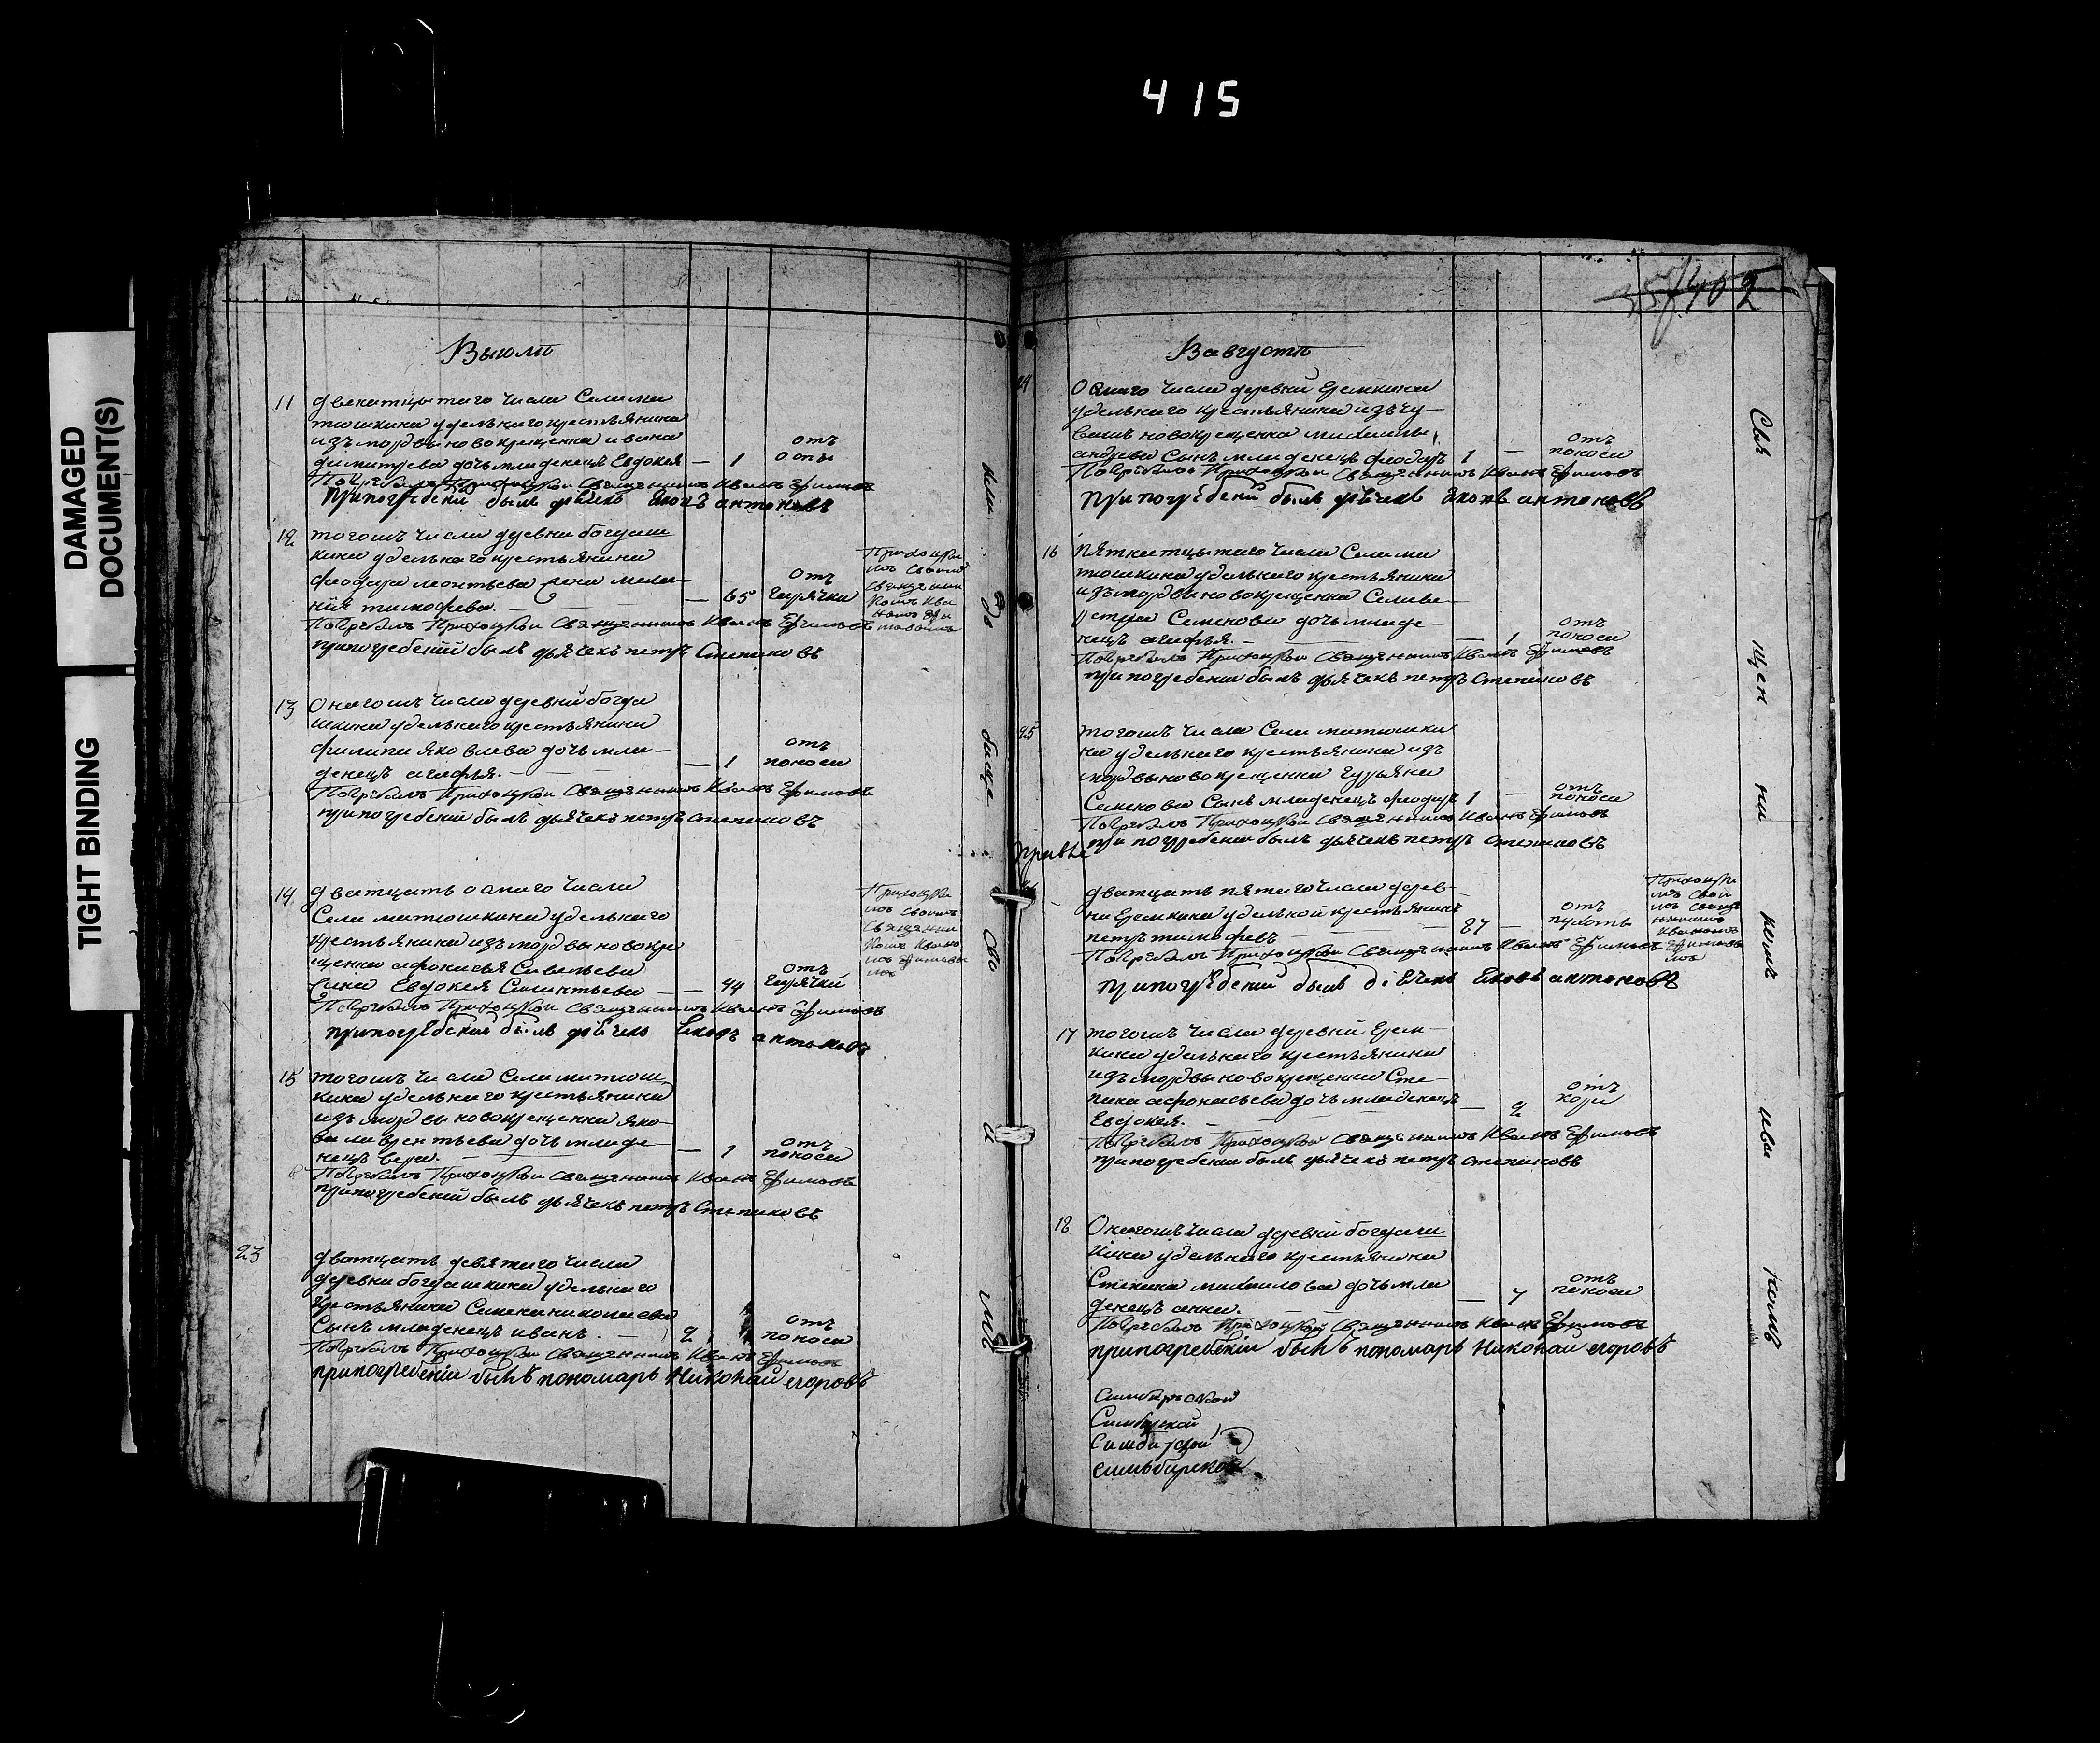 415
DAMAGED
DOCUMENT(S)
TIGHT BINDING
Виюлѣ
11
двенатцатаго числа Села ма
тюшкина удельнаго крестьянина
изъ мордвы новокрещенна ивана
димитрева дочь младенецъ Евдокея — 1
отъ
оспы
Погребалъ Приходскои Священникъ Иванъ Ефимовъ
припогребении былъ дьячекъ Яковъ антоновъ
12
тогожъ числа деревни богдаш
кина удельнаго крестьянина
феодора леонтьева жена мела-
ния тимофева. — — 65
отъ
горячки
Погребалъ Приходскои Священникъ Иванъ Ефимовъ
припогребении былъ дьячекъ петръ Степановъ
Приходски
мъ Своимъ
Священни
комъ Ива
номъ Ефи
мовымъ
13
Онагожъ числа деревни богда
шкина удельнаго крестьянина
филипа яковлева дочь мла-
денецъ агафья. — — 1
отъ
поноса
Погребалъ Приходскои Священникъ Иванъ Ефимовъ
припогребении былъ дьячекъ петръ степановъ
14
дватцать осмаго числа
Села матюшкина удельнаго
крестьянина изъ мордвы новокре
щенна афонасья Савельева
жена Евдокея Силантьева — — 44
отъ
горячки
Погребалъ Приходскои Священникъ Иванъ Ефимовъ
припогребении былъ дьячекъ Яковъ антоновъ
Приходски
мъ Своимъ
Священни
комъ Ивано
мъ Ефимовы
мъ
15
тогожъ числа Села матюш
кина удельнаго крестьянина
изъ мордвы новокрещенна яко-
ва лаврентьева дочь младе-
нецъ вера. — — 1
отъ
поноса
Погребалъ Приходскои Священникъ Иванъ Ефимовъ
припогребении былъ дьячекъ петръ Степановъ
23
дватцать девятаго числа
деревни богдашкина удельнаго
крестьянина Семена николаева
Сынъ младенецъ иванъ. — 2
отъ
поноса
Погребалъ Приходскои Священникъ Иванъ Ефимовъ
припогребении былъ пономарь Николаи егоровъ
402
Вавгустѣ
24
Осмаго числа деревни Еремкина
удельнаго крестьянина изъ чу-
вашъ новокрещенна михаилы
андреева Сынъ младенецъ феодоръ 1 —
отъ
поноса
Погребалъ Приходскои Священникъ Иванъ Ефимовъ
припогребении былъ дьячекъ Яковъ антоновъ
16
пятнатцатаго числа Села ма
тюшкина удельнаго крестьянина
изъ мордвы новокрещенна Селиве-
рстра Семенова дочь младе-
нецъ агафья. — — 1
отъ
поноса
Погребалъ Приходскои Священникъ Иванъ Ефимовъ
припогребении былъ дьячекъ петръ степановъ
25
тогожъ числа Села матюшки
на удельнаго крестьянина изъ
мордвы новокрещенна гурьяна
Семенова Сынъ младенецъ феодоръ 1 —
отъ
поноса
Погребалъ Приходскои Священникъ Иванъ Ефимовъ
припогребении былъ дьячекъ петръ степановъ
дватцать пятаго числа дерев-
ни Еремкина удельной крестьянинъ
петръ тимофевъ — 27 —
отъ
Погребалъ Приходскои Священникъ Иванъ Ефимовъ
припогребении былъ дьячекъ Яковъ антоновъ
Приходски
мъ Свои
мъ Свяще
нникомъ
Иваномъ
Ефимовы
мъ
17
тогожъ числа деревни Ерем-
кина удельнаго крестьянина
изъ мордвы новокрещенна Сте-
пана афонасьева дочь младенецъ
Евдокея. — — 2
отъ
кори
Погребалъ Приходскои Священникъ Иванъ Ефимовъ
припогребении былъ дьячекъ петръ степановъ
18
Онагожъ числа деревни богдаш
кина удельнаго крестьянина
Степана михаилова дочь мла
денецъ анна. — 7
отъ
поноса
Погребалъ Приходскои Священникъ Иванъ Ефимовъ
припогребении былъ пономарь Николаи егоровъ
Симбирской
Симбирской
Симбирской
Симбирской
Свя щен ни комъ